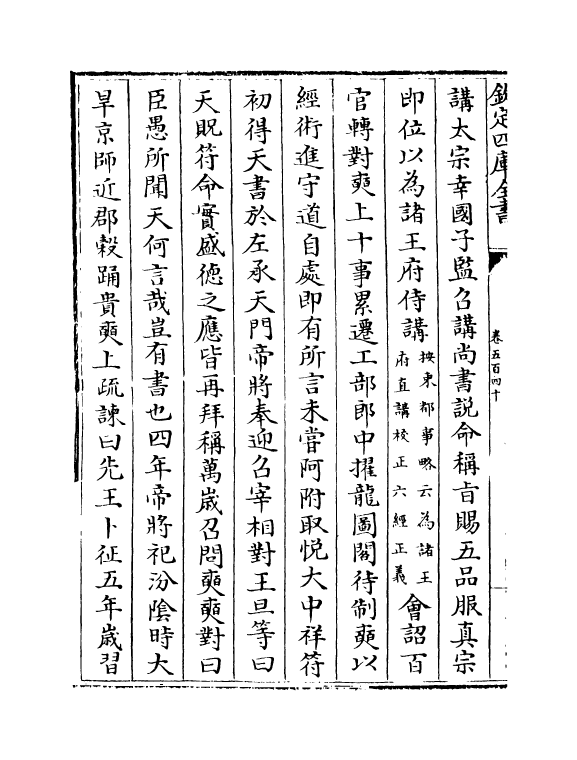 欽定四庫全書
卷五百四十
講太宗幸國子監召講尚書說命稱旨賜五品服真宗
即位以為諸王府侍講按東都事略云為諸王府直講校正六經正義會詔百
官轉對奭上十事累遷工部郎中擢龍圖閣待制奭以
經術進守道自處即有所言未嘗阿附取悅大中祥符
初得天書於左承天門帝將奉迎召宰相對王旦等曰
天貺符命實盛德之應皆再拜稱萬歲召問奭奭對曰
臣愚所聞天何言哉豈有書也四年帝將祀汾陰時大
旱京師近郡穀踊貴奭上疏諫曰先王卜征五年歲習